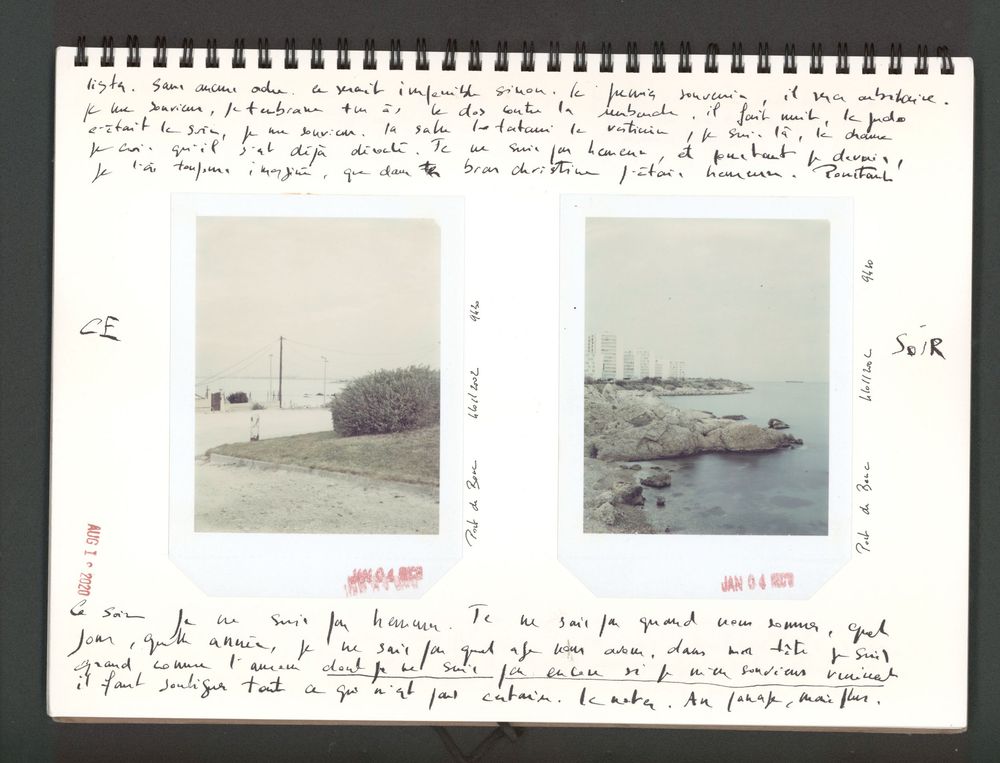 sans aucune odeur. ce serait impossible sinon. le premier souvenir, il sera arbitraire.
je me souviens, je t'embrasse tu as le dos contre la . il fait nuit, le judo
c'était le soir, je me souviens. la salle le tatami le vestiaire, je suis là, le drame
je crois qu'il s'est déjà déroulé. Je ne suis pas heureux, et pourtant je devrais,
je l'ai toujours imaginé, que dans bras christine j'étais heureux. Pourtant
CE
SOIR
Port de Bouc
9h30
Port de Bouc
9h30
AUG 2020
JAN 04
JAN 04
Ce soir je ne suis pas heureux. Je ne sais pas quand nous sommes, quel
jour, quelle année, je ne sais pas quel age nous avons, dans ma tête je suis
grand comme l'amour dont je ne sais pas encore si je m'en souviens vraiment
il faut souligner tout ce qui n'est pas certain. le noter. Au passage, mais plus.